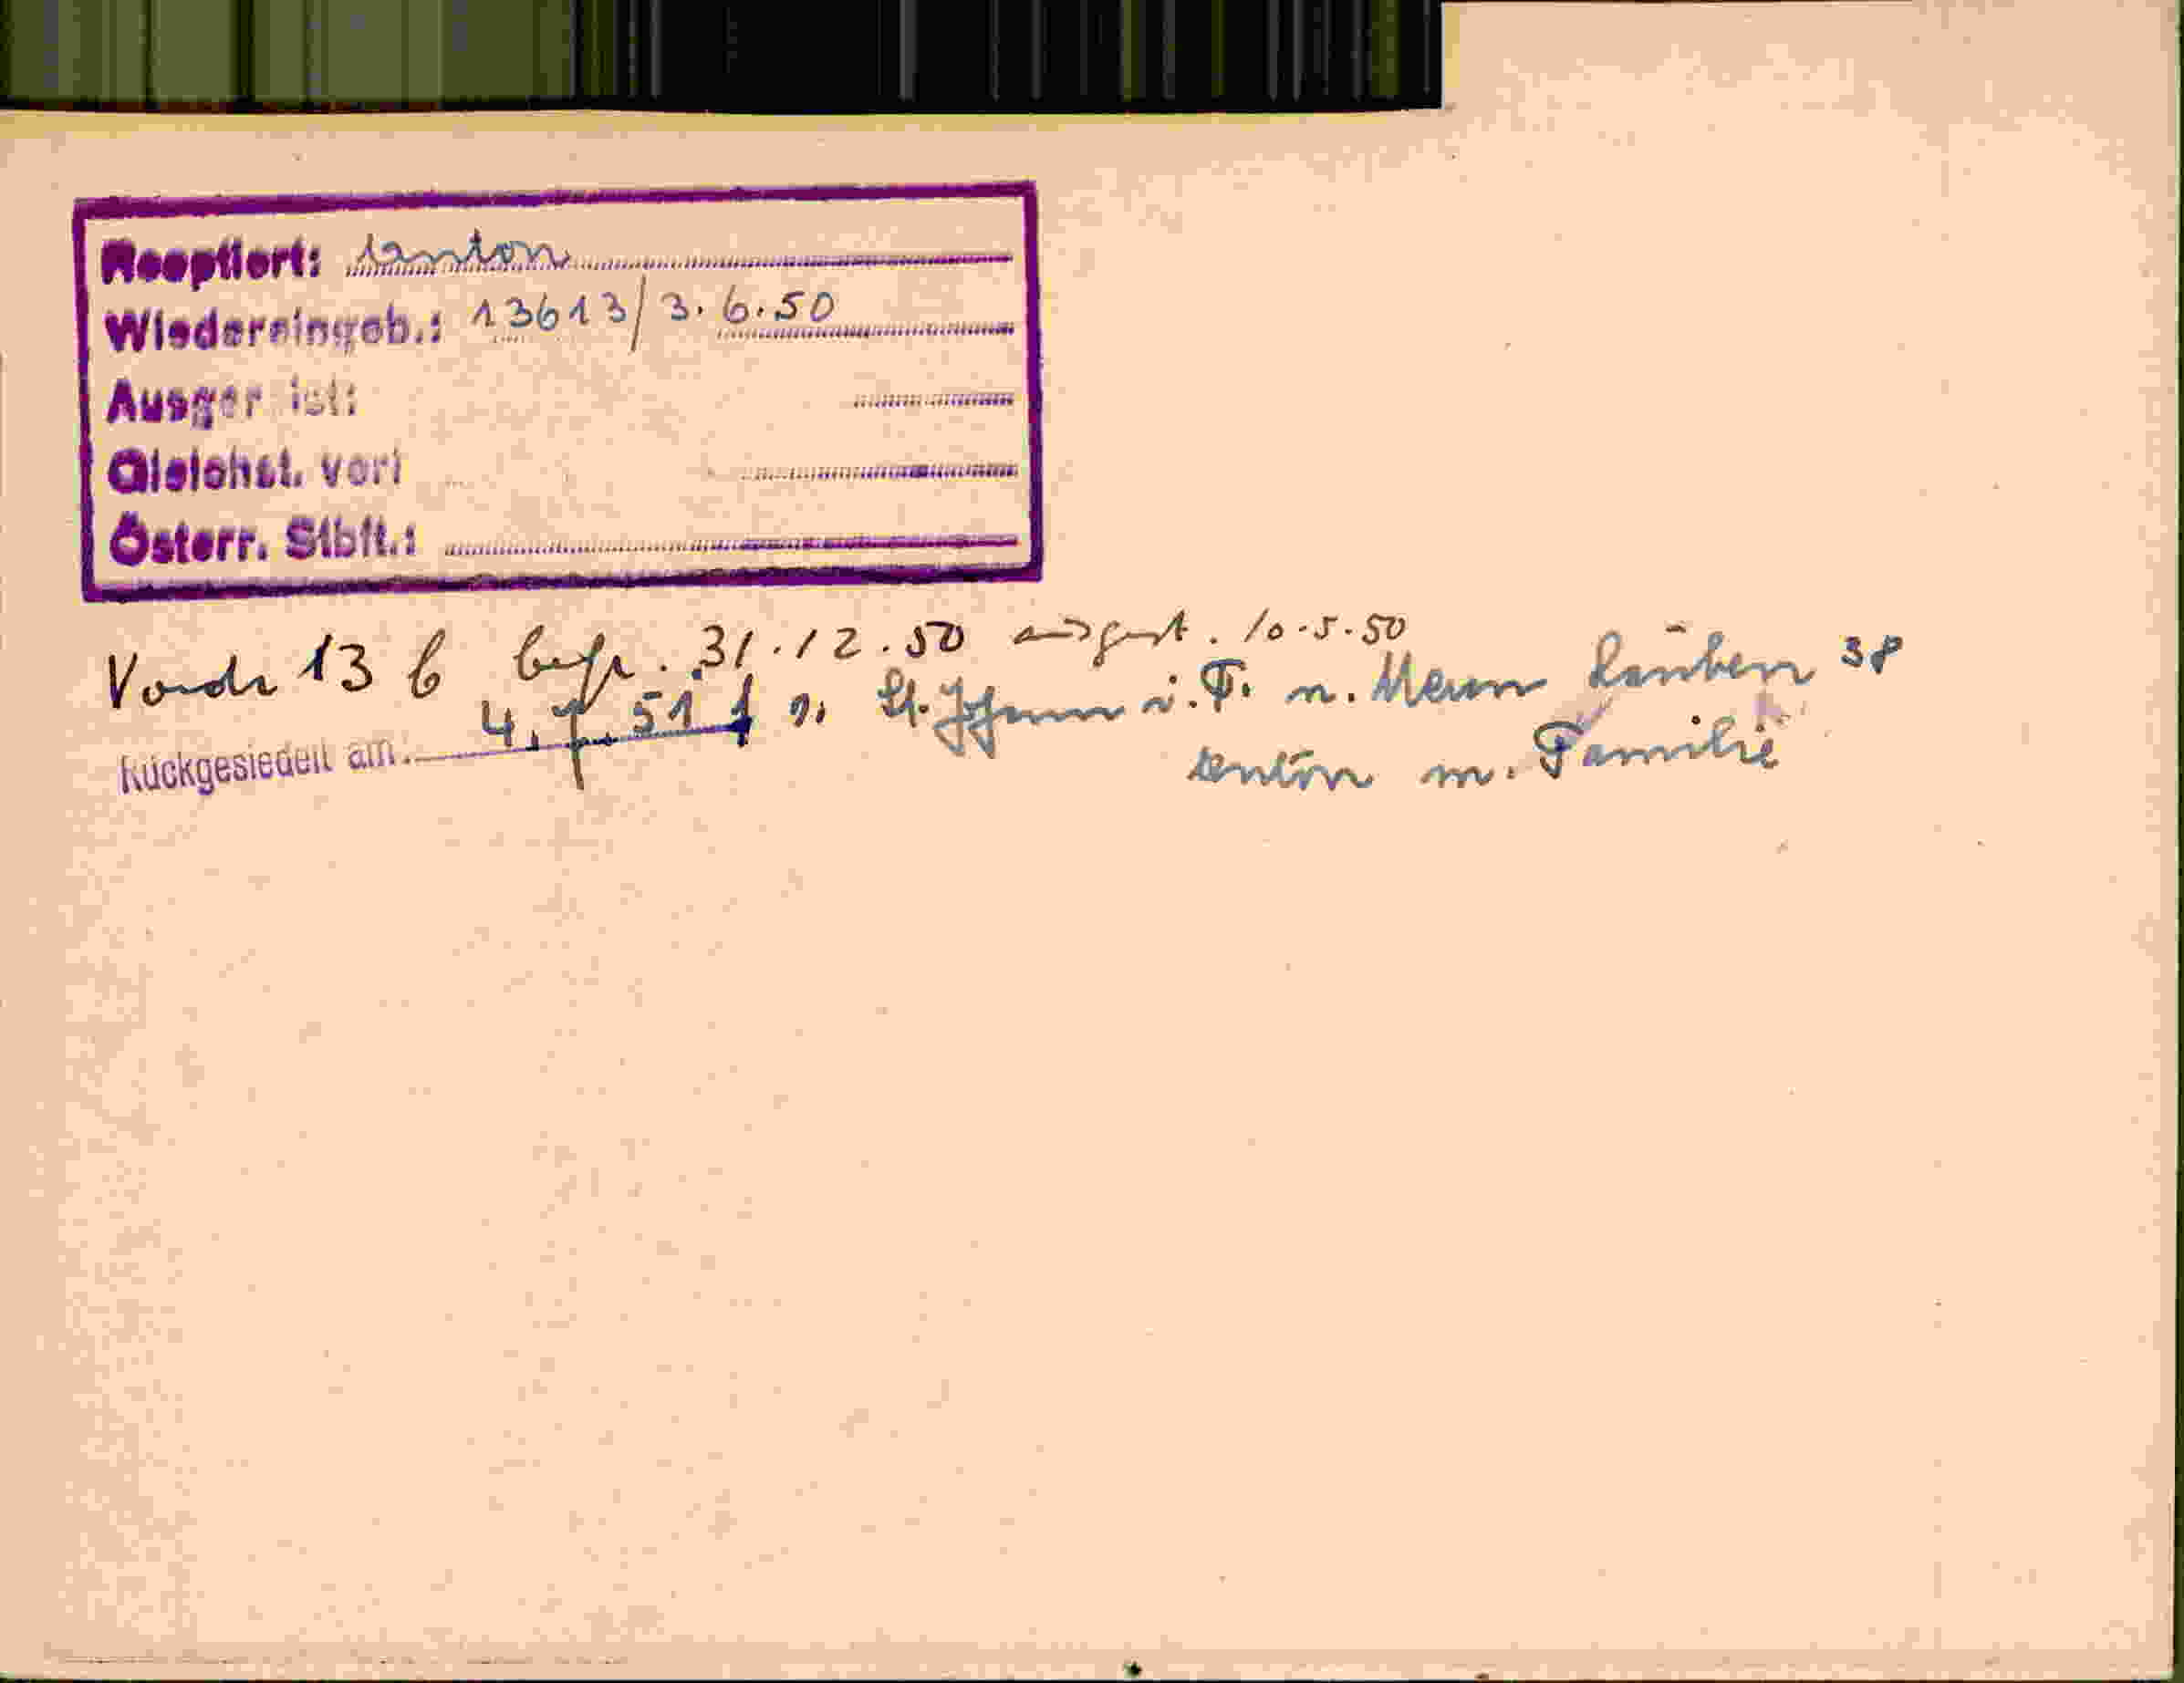 Reoptiert: Anton
Wiedereingeb.: 13613/3.6.50
Ausger ist:
Gleichst. vor:
Österr. Stbft.:
Vordr 13 b befr. 31.12.50 ausgest. 10.5.50
Rückgesiedelt am: 4. 51 n. St. Johann i. T. n. Meran Lauben 38
Anton m. Familie